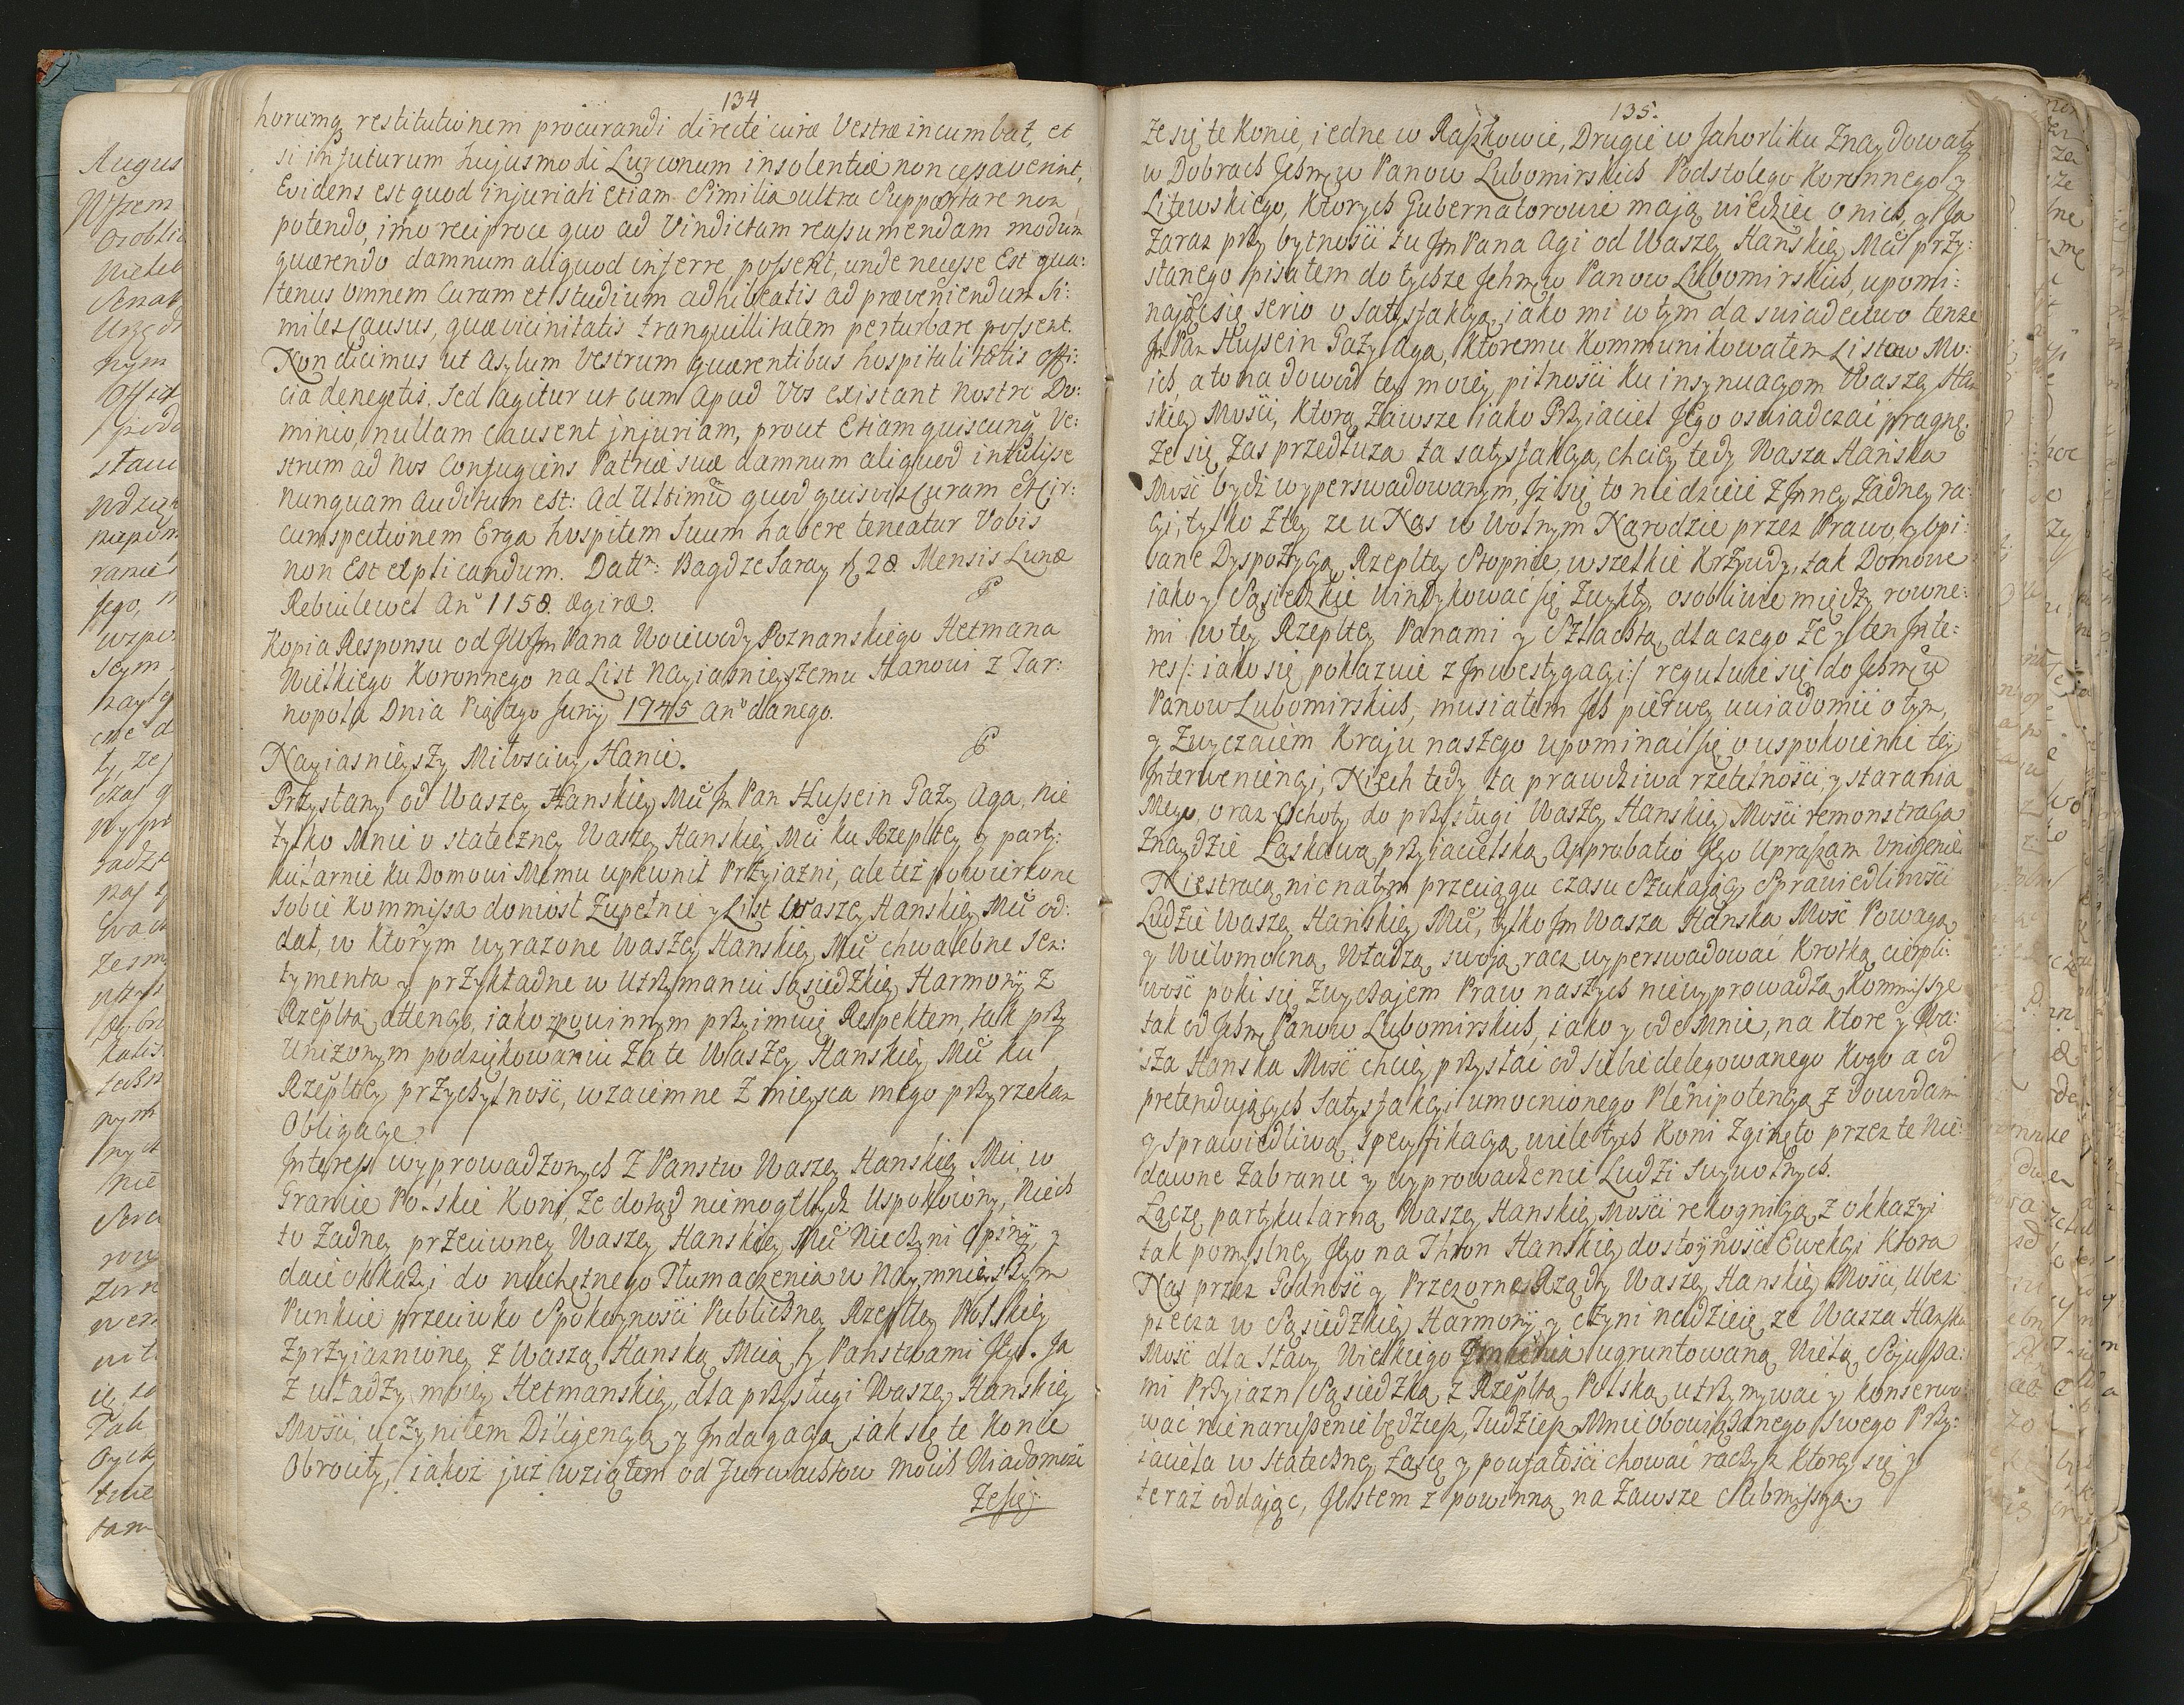 134
horumq restitutionem procurandi directe curæ Vestræ incumbat, et
si in futurum hujusmodi Lurconum insolentiæ non cessaverint,
Evidens est quod injuriati etiam Similia ultra Supportare non
potendo, imo reciproce quo ad Vindictam reassumendam modum
quærendo damnum aliquod inferre possent, unde necesse Est qua:
tenus omnem Curam et studium adhibeatis ad præveniendum Si:
miles Causus, quæ vicinitatis tranquillitatem perturbare possent.
Non dicimus ut Asylum Vestrum quærentibus hospitalitatis offi:
cia denegetis. Sed agitur ut cum Apud Vos existant Nostro Do:
minio, nullam causent injuriam, prout Etiam quiscunq Ve:
strum ad Nos Confugiens Patriæ suæ damnum aliquod intulisse
nunquam Auditum est: Ad Ultimũ quod quisvis Curam et Cir:
cumspectionem Erga hospitem Suum habere teneatur Vobis
non Est explicandum. Datt: Bagdze Saray d 28 Mensis Lunæ
Rebiulewel Anº 1158. Ægiræ.
Kopia Responsu od JWJm Pana Woiewody Poznanskiego Hetmana
Wielkiego Koronnego na List Nayiasnieyszemu Hanowi z Tar:
nopola Dnia Piątego Junij 1745 Anº danego.
Nayiasnieyszy Miłosciwy Hanie.
Przysłany od Waszey Hanskiey Mci Jm Pan Hussein Pazy Aga, nie
tylko Mnie o stateczney Waszey Hanskiey Mci ku Rzeplitey y party:
kularnie ku Domowi Memu upewnił Przyiazni, ale też powierzone
sobie Kommissa doniosł Zupełnie y List Waszey Hanskiey Mci od:
dał, w ktorym wyrażone Waszey Hanskiey Mci chwalebne Sen:
tymenta y przykładne w Utrzymaniu Sąsiedzkiey Harmonij z
Rzepltą attencye, iako z powinnym przyimuię Respektem, tak przy
Unizonym podziękowaniu Za te Waszey Hanskiey Mci ku
Rzepltey przychylność, wzaiemne Z mieysca mego przyrzekam
Obligacye.
Interess wyprowadzonych Z Panstw Waszey Hanskiey Mci, w
Granice Polskie Koni, Ze dotąd nie mogł bydz Uspokoiony, Niech
to Zadney przeciwney Waszey Hanskiey Mci Nie czyni Opinij y
daie okkazyi do niechętnego Tłumaczenia w Naymnieyszym
Punkcie przeciwko Spokoyności Publiczney Rzepltey Polskiey
Zprzyiaznioney z Waszą Hanską Mcią y Panstwami Jego. Ja
Z władzy moiey Hetmanskiey, dla przysługi Waszey Hanskiey
Mości, uczyniłem Diligencyą y Indagacyą, iak się te Konie
Obrociły, iakoż juz wziąłem od Zurwachtow moich Wiadomość
Ze się
135.
ze się te Konie, iedne w Raszkowie, Drugie w Jahorliku Znaydowały
w Dobrach Jchmciw Panow Lubomirskich Podstolego Koronnego y
Litewskiego, Ktorych Gubernatorowie mają wiedzieć o nich, y Ja
Zaraz przy bytności tu Jm Pana Agi od Waszey Hanskiey Mci przy:
słanego pisałem do tychze Jchmciw Panow Lubomirskich, upomi:
nając się serio o Satysfakcyą, iako mi w tym da swiadectwo tenze
Jm Pan Hussein Pazy Aga, Ktoremu Kommunikowałem Listow Mo:
ich, a to na dowod tey moiey pilności ku insynuacyom Waszey Han
skiey Mości, Ktorą Zawsze iako Przyiaciel Jego oswiadczać pragnę.
Ze się Zas przedłuza ta satysfakcya, chciey tedy Wasza Hanska
Mość bydź wyperswadowanym, Jz się to nie dzieie Z Jnney Zadney ra:
cyi, tylko Z tey ze u Nas w Wolnym Narodzie przez Prawo y opi:
sane Dyspozycyą Rzepltey Stopnie, wszelkie Krzywdy, tak Domowe
iako y Sąsiedzkie Windykować się Zwykły, osobliwie między rowne:
mi w tey Rzepltey Panami y Szlachtą, dla czego Ze y ten Inte:
res /: iako się pokazuie z Inwestygacyi:/ regulule się do Jchmciw
Panow Lubomirskich, musiałem Jch pierwey uwiadomić o tym,
y Zwyczaiem Kraju naszego upominać się o uspokoienie tey
Interweniencyi, Niech tedy ta prawdziwa rzetelności y starania
Mego, oraz ochoty do przysługi Waszey Hanskiey Mości remonstracya
Znaydzie Łaskawą przyiacielską Approbatio Jego Upraszam Unizenie.
Nie stracą nic na tym przeciągu czasu Szukaiący Sprawiedliwości
Ludzie Waszey Hanskiey Mci, tylko Jm Wasza Hanska Mość Powagą
y Wielomocną Władzą swoją racz wyperswadować Krotką cierpli:
wość poki się Zwyczajem Praw naszych nie wyprowadzą Kommissye
tak od Jchmciw Panow Lubomirskich, iako y ode Mnie, na ktore y Wa:
sza Hanska Mość chciey przysłać od siebie delegowanego Kogo a od
pretendujących Satysfakcyi umocnionego Plenipotencyą z Dowodami
y sprawiedliwą specyfikacyą, wiele tych Koni Zginęło przez te nie:
dawne Zabranie y wyprowadzenie Ludzi Swywolnych.
Łączę partykularną Waszey Hanskiey Mości rekognicyą Z okkazyi
tak pomyslney Jego na Thron Hanskiey dostoyności Ewekcyi Ktora
Nas przez Godność y Przezorne Rządy Waszey Hanskiey Mości, Ubez:
piecza w Sąsiedzkiey Harmonij y czyni nadzieię, ze Wasza Hanska
Mość dla Sławy Wielkiego Imienia ugruntowaną Wielą Sojusza:
mi Przyiazn Sąsiedzką z Rzepltą Polską utrzymywać y konserwo:
wać nienaruszenie będziesz, Tudziesz Mnie obowiązanego Swego Przy:
iaciela w Stateczney Łasce y poufałości chować raczysz ktorey się y
teraz oddając, Jestem z powinną na Zawsze Submissyą.